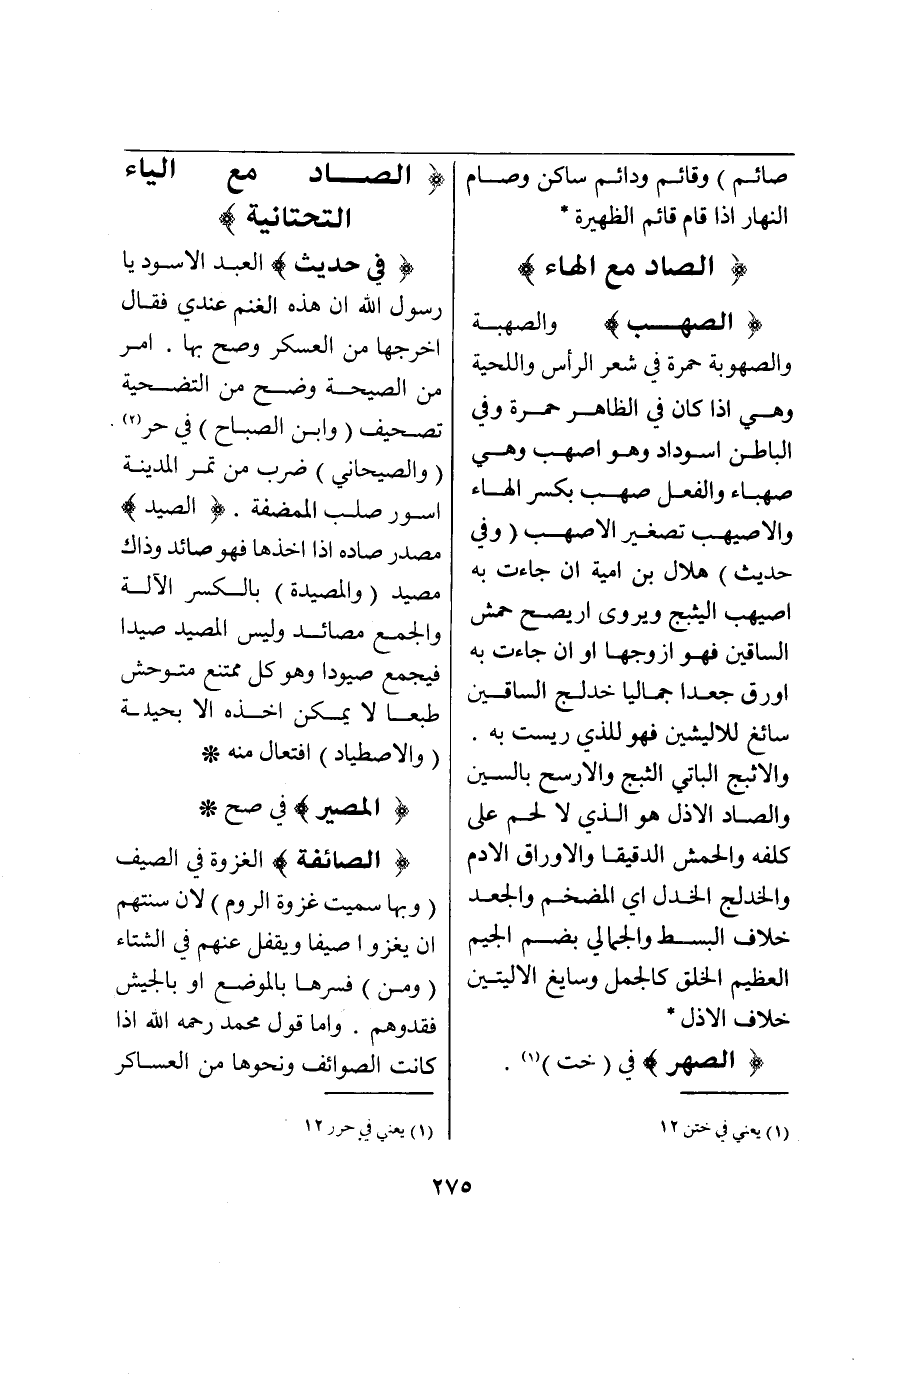 صائم ) وقائم ودائم ساكن وصام
النهار اذا قام قائم الظهيرة *
﴿ الصاد مع الهاء ﴾
﴿ الصهب ﴾ والصهبة
والصهوبة حمرة في شعر الرأس واللحية
وهي اذا كان في الظاهر حمرة وفي
الباطن اسوداد وهو اصهب وهي
صهباء والفعل صهب بكسر الهاء
والاصيهب تصغير الاصهب ( وفي
حديث ) هلال بن امية ان جاءت به
اصيهب اليثبج ويروى اريصح حمش
الساقين فهو ازوجها او ان جاءت به
اورق جعدا جماليا خدلج الساقين
سائغ للاليشين فهو للذي ريست به .
والاثبج الباتي الثبج والارسح بالسين
والصاد الاذل هو الذي لا لحم على
كلفه والحمش الدقيقا والاوراق الادم
والخدلج الخدل اي المضخم والجعد
خلاف البسط والجمالي بضم الجيم
العظيم الخلق كالجمل وسايغ الاليتين
خلاف الاذل *
﴿ الصهر ﴾ في ( خت ) (١) .
(١) يعني في ختن ١٢
﴿ الصاد مع الياء
التحتانية ﴾
﴿ في حديث ﴾ العبد الاسود يا
رسول الله ان هذه الغنم عندي فقال
اخرجها من العسكر وصح بها . امر
من الصيحة وضح من التضحية
تصحيف ( وابن الصباح ) في حر (٢) .
( والصيحاني ) ضرب من تمر المدينة
اسور صلب الممضفة . ﴿ الصيد ﴾
مصدر صاده اذا اخذها فهو صائد وذاك
مصيد ( والمصيدة ) بالكسر الآلة
والجمع مصائد وليس المصيد صيدا
فيجمع صيودا وهو كل ممتنع متوحش
طبعا لا يمكن اخذه الا بحيلة
( والاصطياد ) افتعال منه *
﴿ المصير ﴾ في صح *
﴿ الصائفة ﴾ الغزوة في الصيف
( وبها سميت غزوة الروم ) لان سنتهم
ان يغزوا صيفا ويقفل عنهم في الشتاء
( ومن ) فسرها بالموضع او بالجيش
فقدوهم . واما قول محمد رحمه الله اذا
كانت الصوائف ونحوها من العساكر
(١) يعني في حرر ١٢
٢٧٥